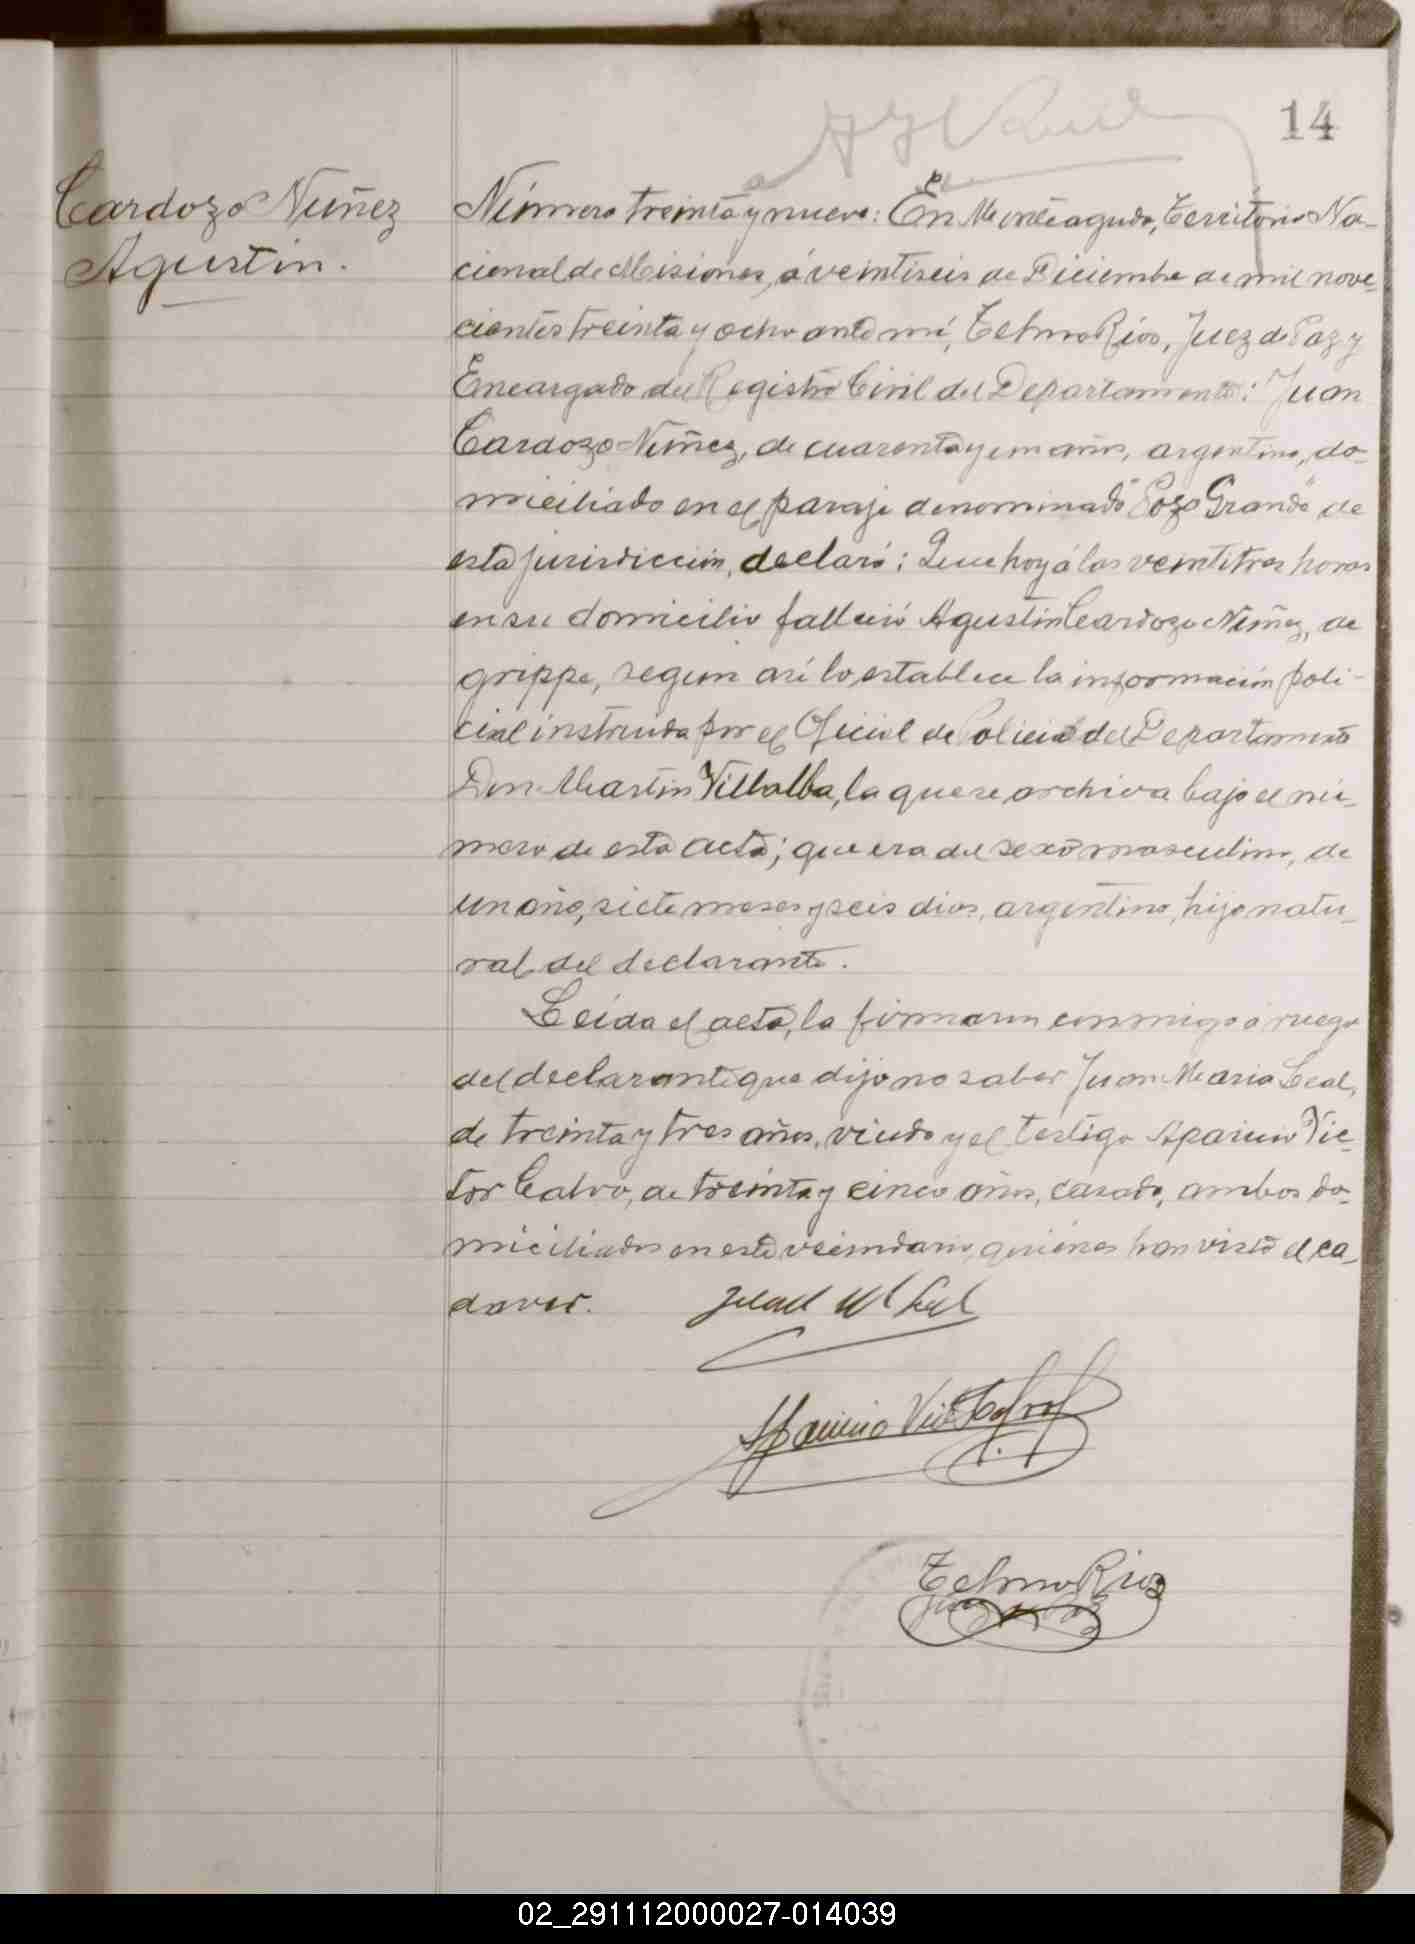 14
Cardozo Nuñez
Agustin.
Número treinta y nueve: En Monteagudo, Territorio Na-
cional de Misiones, á veintiseis de Diciembre de mil nove-
cientos treinta y ocho ante mí, Telmo Rios, Juez de Paz y
Encargado del Registro Civil del Departamento: Juan
Cardozo Nuñez, de cuarenta y un años, argentino, do-
miciliado en el paraje denominado "Pozo Grande" de
esta jurisdicción, declaró: Que hoy á las veintitres horas
en su domicilio falleció Agustin Cardozo Nuñez, de
grippe, segun así lo establece la información poli-
cial instruida por el Oficial de Policia del Departamento
Don Martin Villalba, la que se archiva bajo el nú-
mero de esta acta; que era del sexo masculino, de
un año, siete meses y seis dias, argentino, hijo natu-
ral del declarante.
Leida el acta, la firmaron conmigo a ruego
del declarante que dijo no saber Juan Maria Leal,
de treinta y tres años, viudo y el testigo Aparicio Vic-
tor Calvo, de treinta y cinco años, casado, ambos do-
miciliados en este vecindario, quiénes han visto el ca-
daver. Juan M Leal
Aparicio Vic Calvo
Telmo Rios
Juez de Paz
02_291112000027-014039